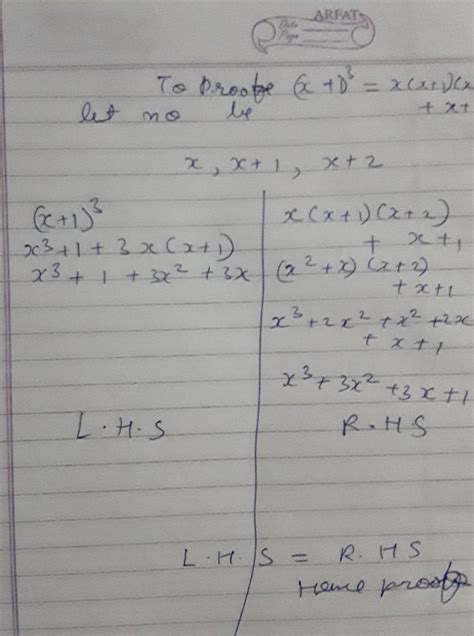 ARFAT
Date
Page
To Proofe (x+1)³ = x(x+1)(x
let no be + x+
x, x+1, x+2
(x+1)³
x³+1+3x(x+1)
x³+1+3x²+3x
L.H.S
x(x+1)(x+2)
+ x+1
(x²+x)(x+2)
+x+1
x³+2x²+x²+2x
+x+1
x³+3x²+3x+1
R.HS
L.H.S = R.HS